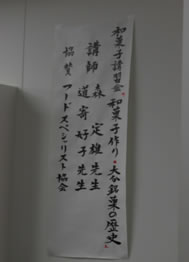 和菓子講習会
和菓子作り・大分銘菓の歴史
講師 森 定雄先生
道寄 好子先生
協賛 フードスペシャリスト協会